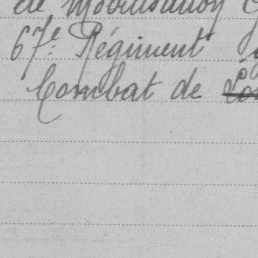 de mobilisation
67e Régiment
Combat de